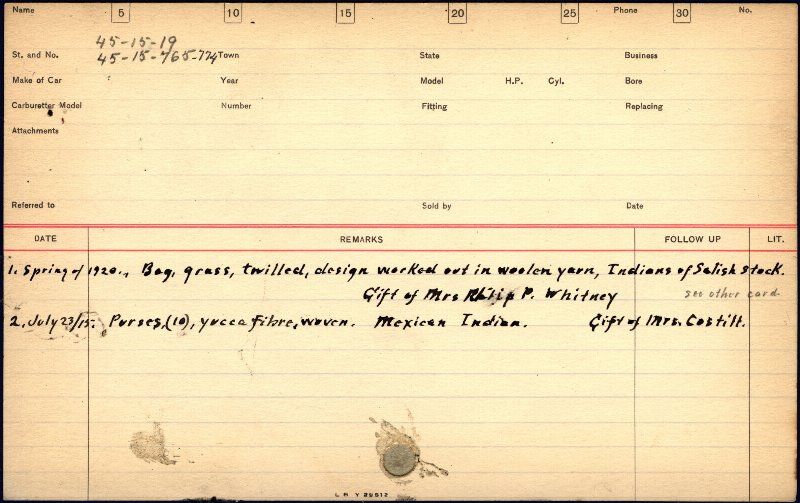 Name 5 10 15 20 25 Phone 30 No.
45-15-19
St. and No. 45-15-765-774 Town State Business
Make of Car Year Model H.P. Cyl. Bore
Carburetter Model Number Fitting Replacing
Attachments
Referred to Sold by Date
DATE REMARKS FOLLOW UP LIT.
1. Spring of 1920., Bag, grass, twilled, design worked out in woolen yarn, Indians of Salish stock.
Gift of Mrs Philip P. Whitney see other card
2. July 23/15. Purses, (10), yucca fibre, woven. Mexican Indian. Gift of Mrs. Costill.
L B Y 39512